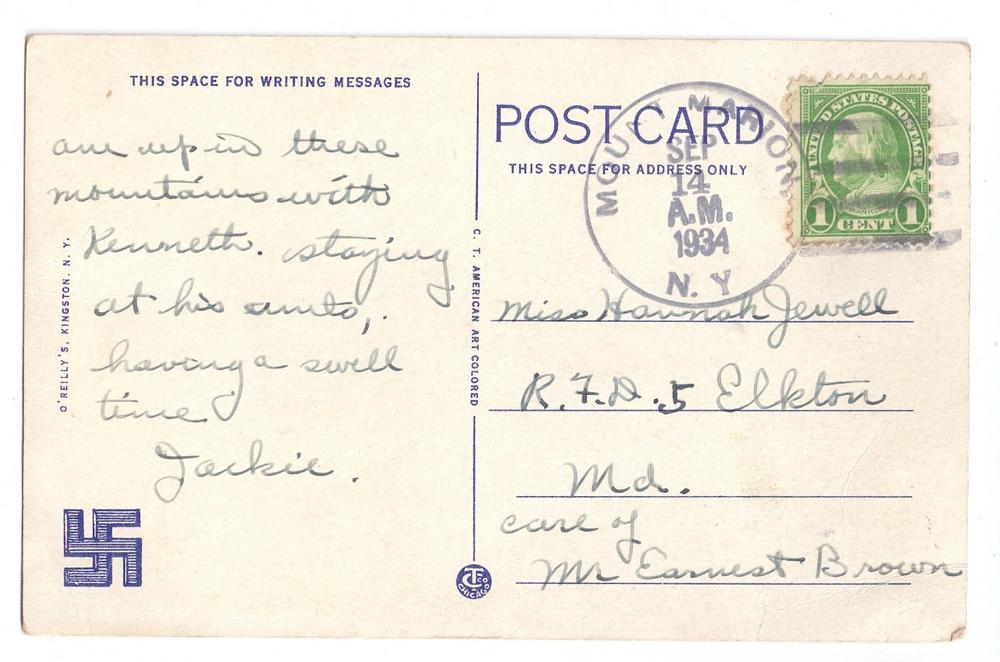 THIS SPACE FOR WRITING MESSAGES
am up in these
mountains with
Kenneth. staying
at his aunts,.
having a swell
time
Jackie.
O'REILLY'S, KINGSTON, N. Y.
C. T. AMERICAN ART COLORED
CT Co
CHICAGO
POST CARD
THIS SPACE FOR ADDRESS ONLY
MOUNT MARION,
SEP
14
A.M.
1934
N. Y
UNITED STATES POSTAGE
FRANKLIN
1 1
CENT
Miss Hannah Jewell
R.F.D. 5 Elkton
Md.
care of
Mr Earnest Brown